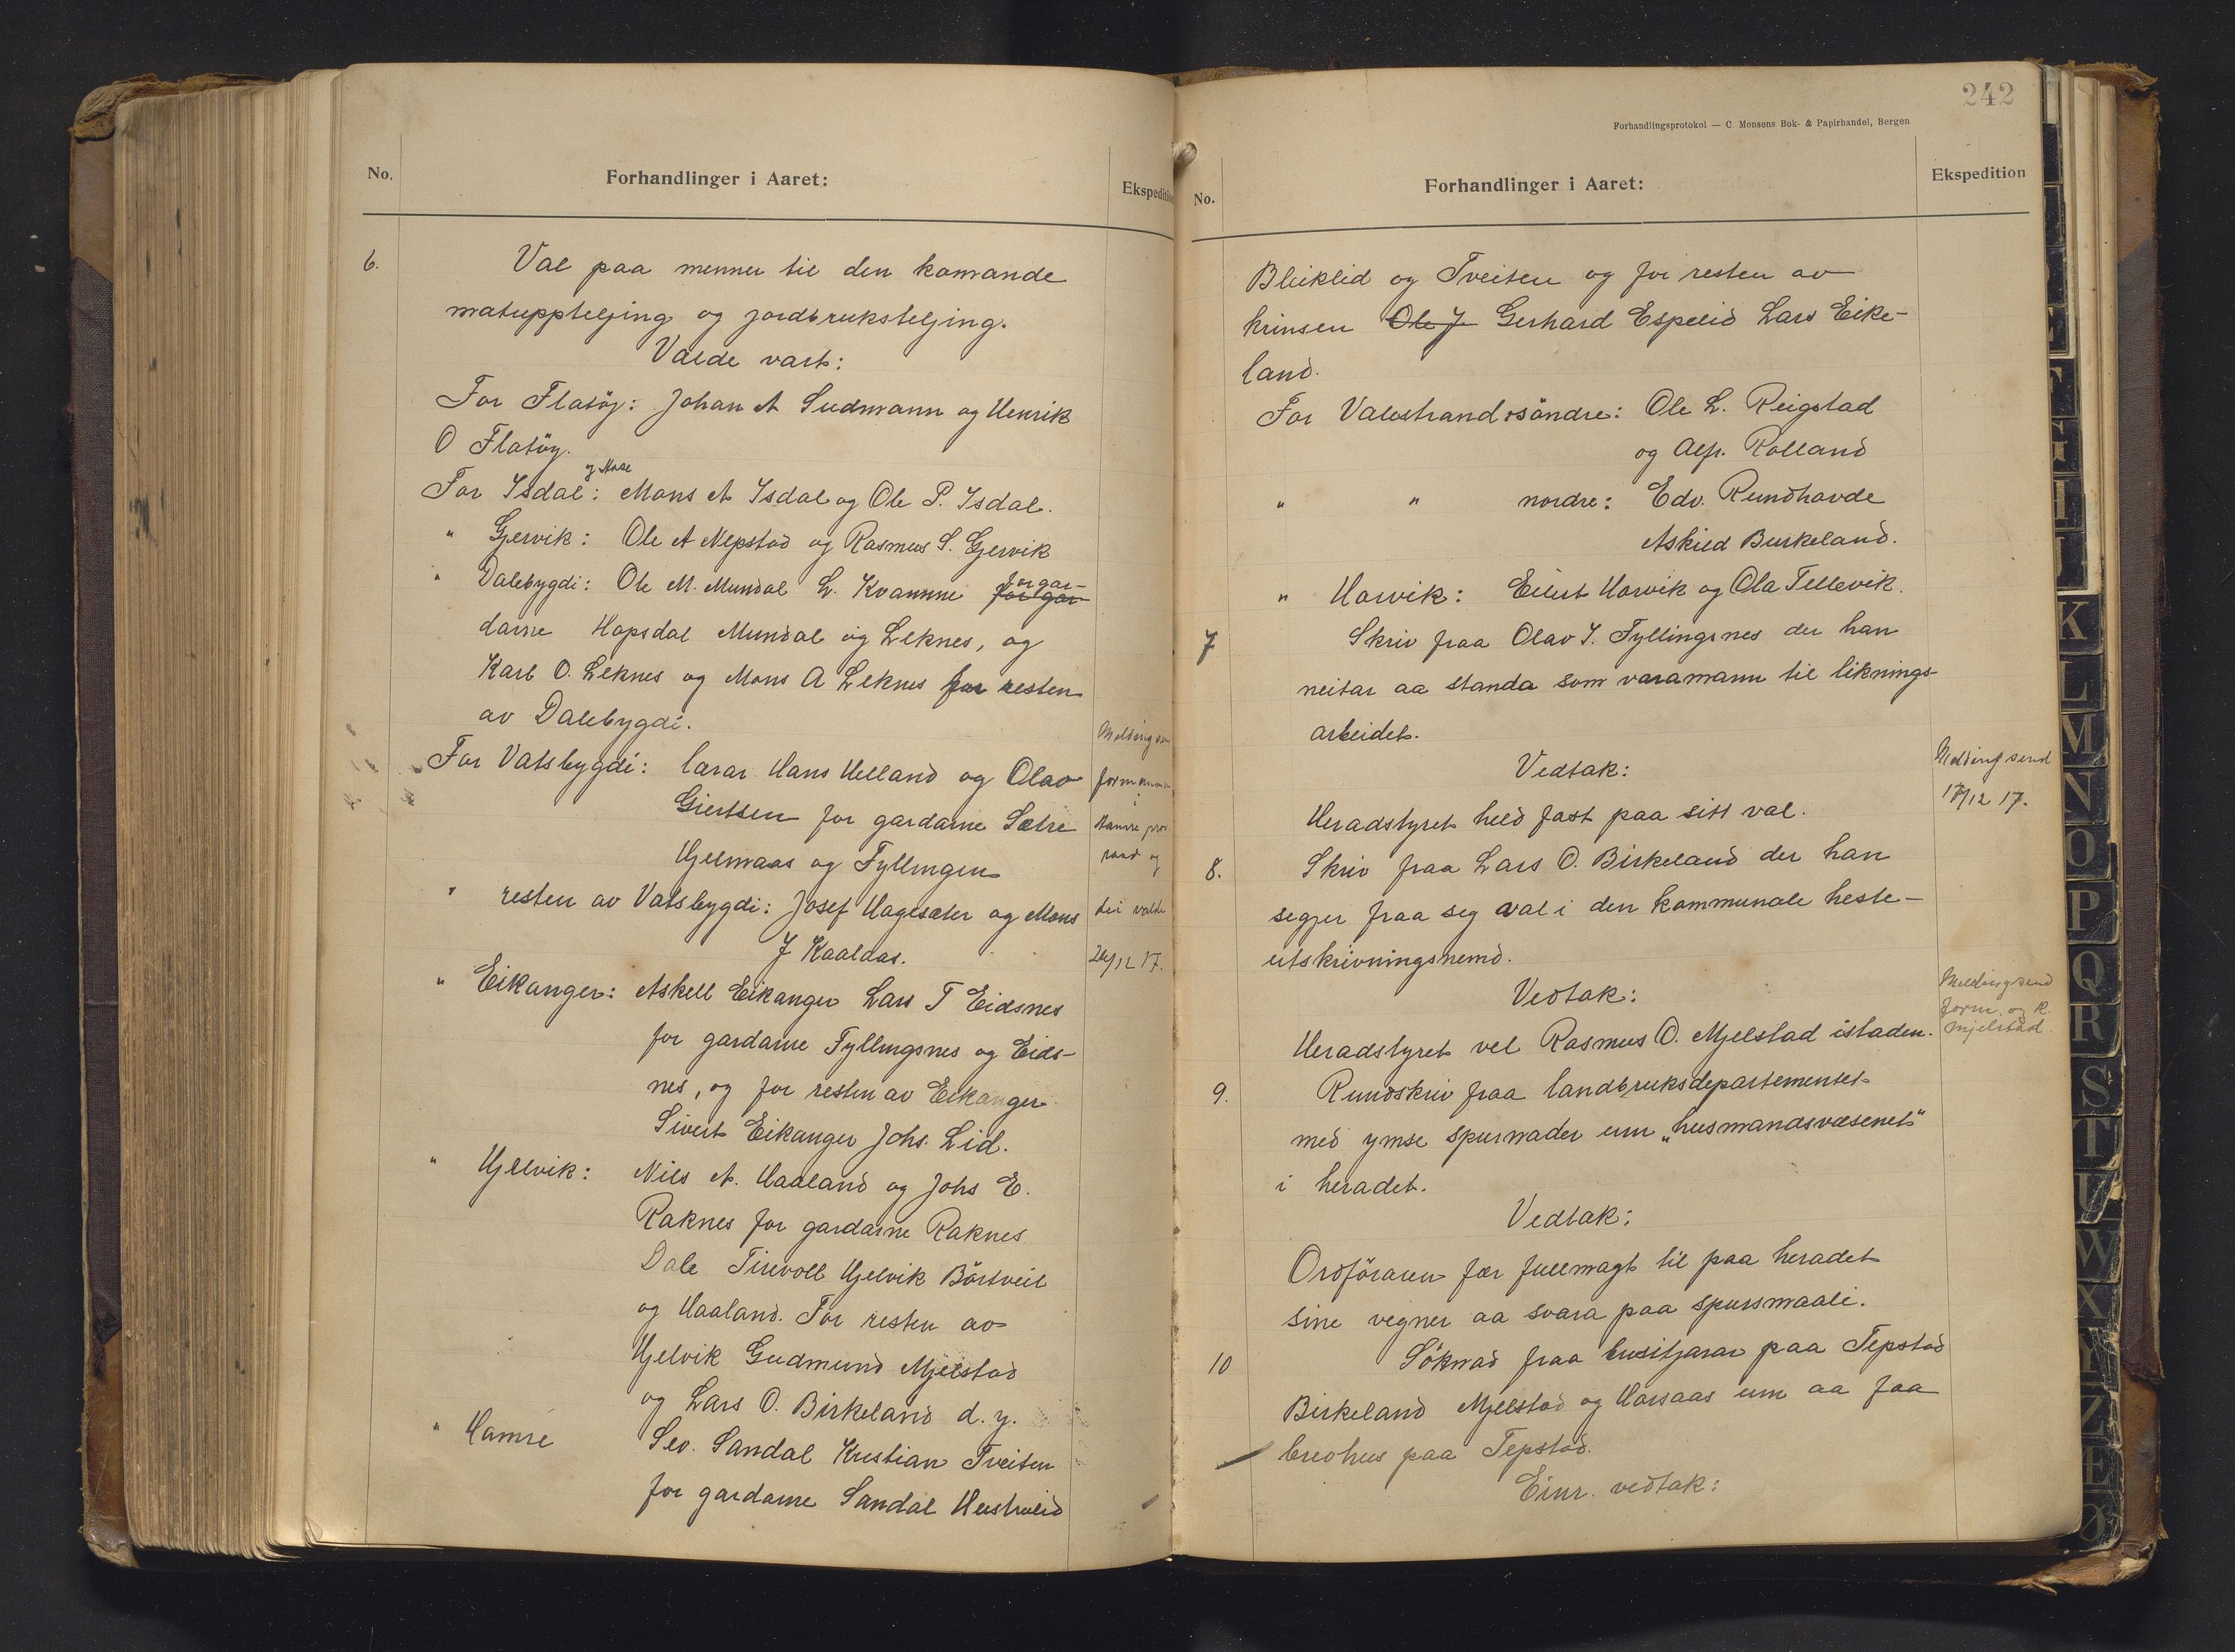 No. Forhandlinger i Aaret: Ekspedition
6. Val paa menner til den komande
matuppteljing og jordbruksteljing.
Valde vart:
For Flatøy: Johan A Sudmann og Henrik
O Flatøy.
og Mose
For Isdal: Mons A Isdal og Ole P. Isdal.
" Gjervik: Ole A Nepstad og Rasmus S. Gjervik
" Dalebygdi: Ole M. Mundal L. Kvamme for gar- for gar
darne Hopsdal Mundal og Leknes, og
Karl O. Leknes og Mons A Leknes for resten
av Dalebygdi.
For Vatsbygdi: lærar Hans Helland og Olav
Giertsen for gardarne Sætre
Hjelmaas og Fyllingen
" resten av Vatsbygdi: Josef Hagesæter og Mons
J Kaaldas.
Melding
formannen
i
Hamre
og
dei valde
24/12 17.
" Eikanger: Askell Eikanger Lars T Eidsnes
for gardarne Fyllingsnes og Eids-
nes, og for resten av Eikanger
Sivert Eikanger Johs. Lid.
" Hjelvik: Nils A. Haaland og Johs E.
Raknes for gardarne Raknes
Dale Tirevoll Hjelvik Börtveit
og Haaland. For resten av
Hjelvik Gudmund Mjelstad
og Lars O. Birkeland d. y.
" Hamre Sev. Sandal Kristian Tveiten
for gardarne Sandal Hustrulid
242
Forhandlingsprotokol — C. Monsens Bok- & Papirhandel, Bergen
No. Forhandlinger i Aaret: Ekspedition
Bleiklid og Tveiten og for resten av
krinsen Ole J. Gerhard Espelid Lars Eike-
land.
For Valestrand söndre: Ole L. Reigstad
og Alfr. Rolland
" " nordre: Edv. Rundhovde
Askild Burkeland.
" Horvik: Eilert Horvik og Ola Tellevik.
7 Skriv fraa Olav I. Fyllingsnes der han
neitar aa standa som varamann til liknings-
arbeidet.
Vedtak:
Heradstyret held fast paa sitt val.
Melding send
17/12 17.
8. Skriv fraa Lars O. Birkeland der han
segjer fraa seg val i den kommunale heste-
utskrivningsnemd.
Vedtak:
Heradstyret vel Rasmus O. Mjelstad istaden.
Melding send
form. og R.
Mjelstad.
9. Rundskriv fraa landbruksdepartementet
med ymse spurnader um „husmandsvæsenet"
i heradet.
Vedtak:
Ordföraren fær fullmagt til paa heradet
sine vegner aa svara paa spursmaali.
10 Söknad fraa busitjarar paa Tepstad
Birkeland Mjelstad og Horsaas um aa faa
brevhus paa Tepstad.
Einr. vedtak:
K
L
M
N
O
P
Q
R
S
T
U
W
X
Y
Z
Æ
Ø